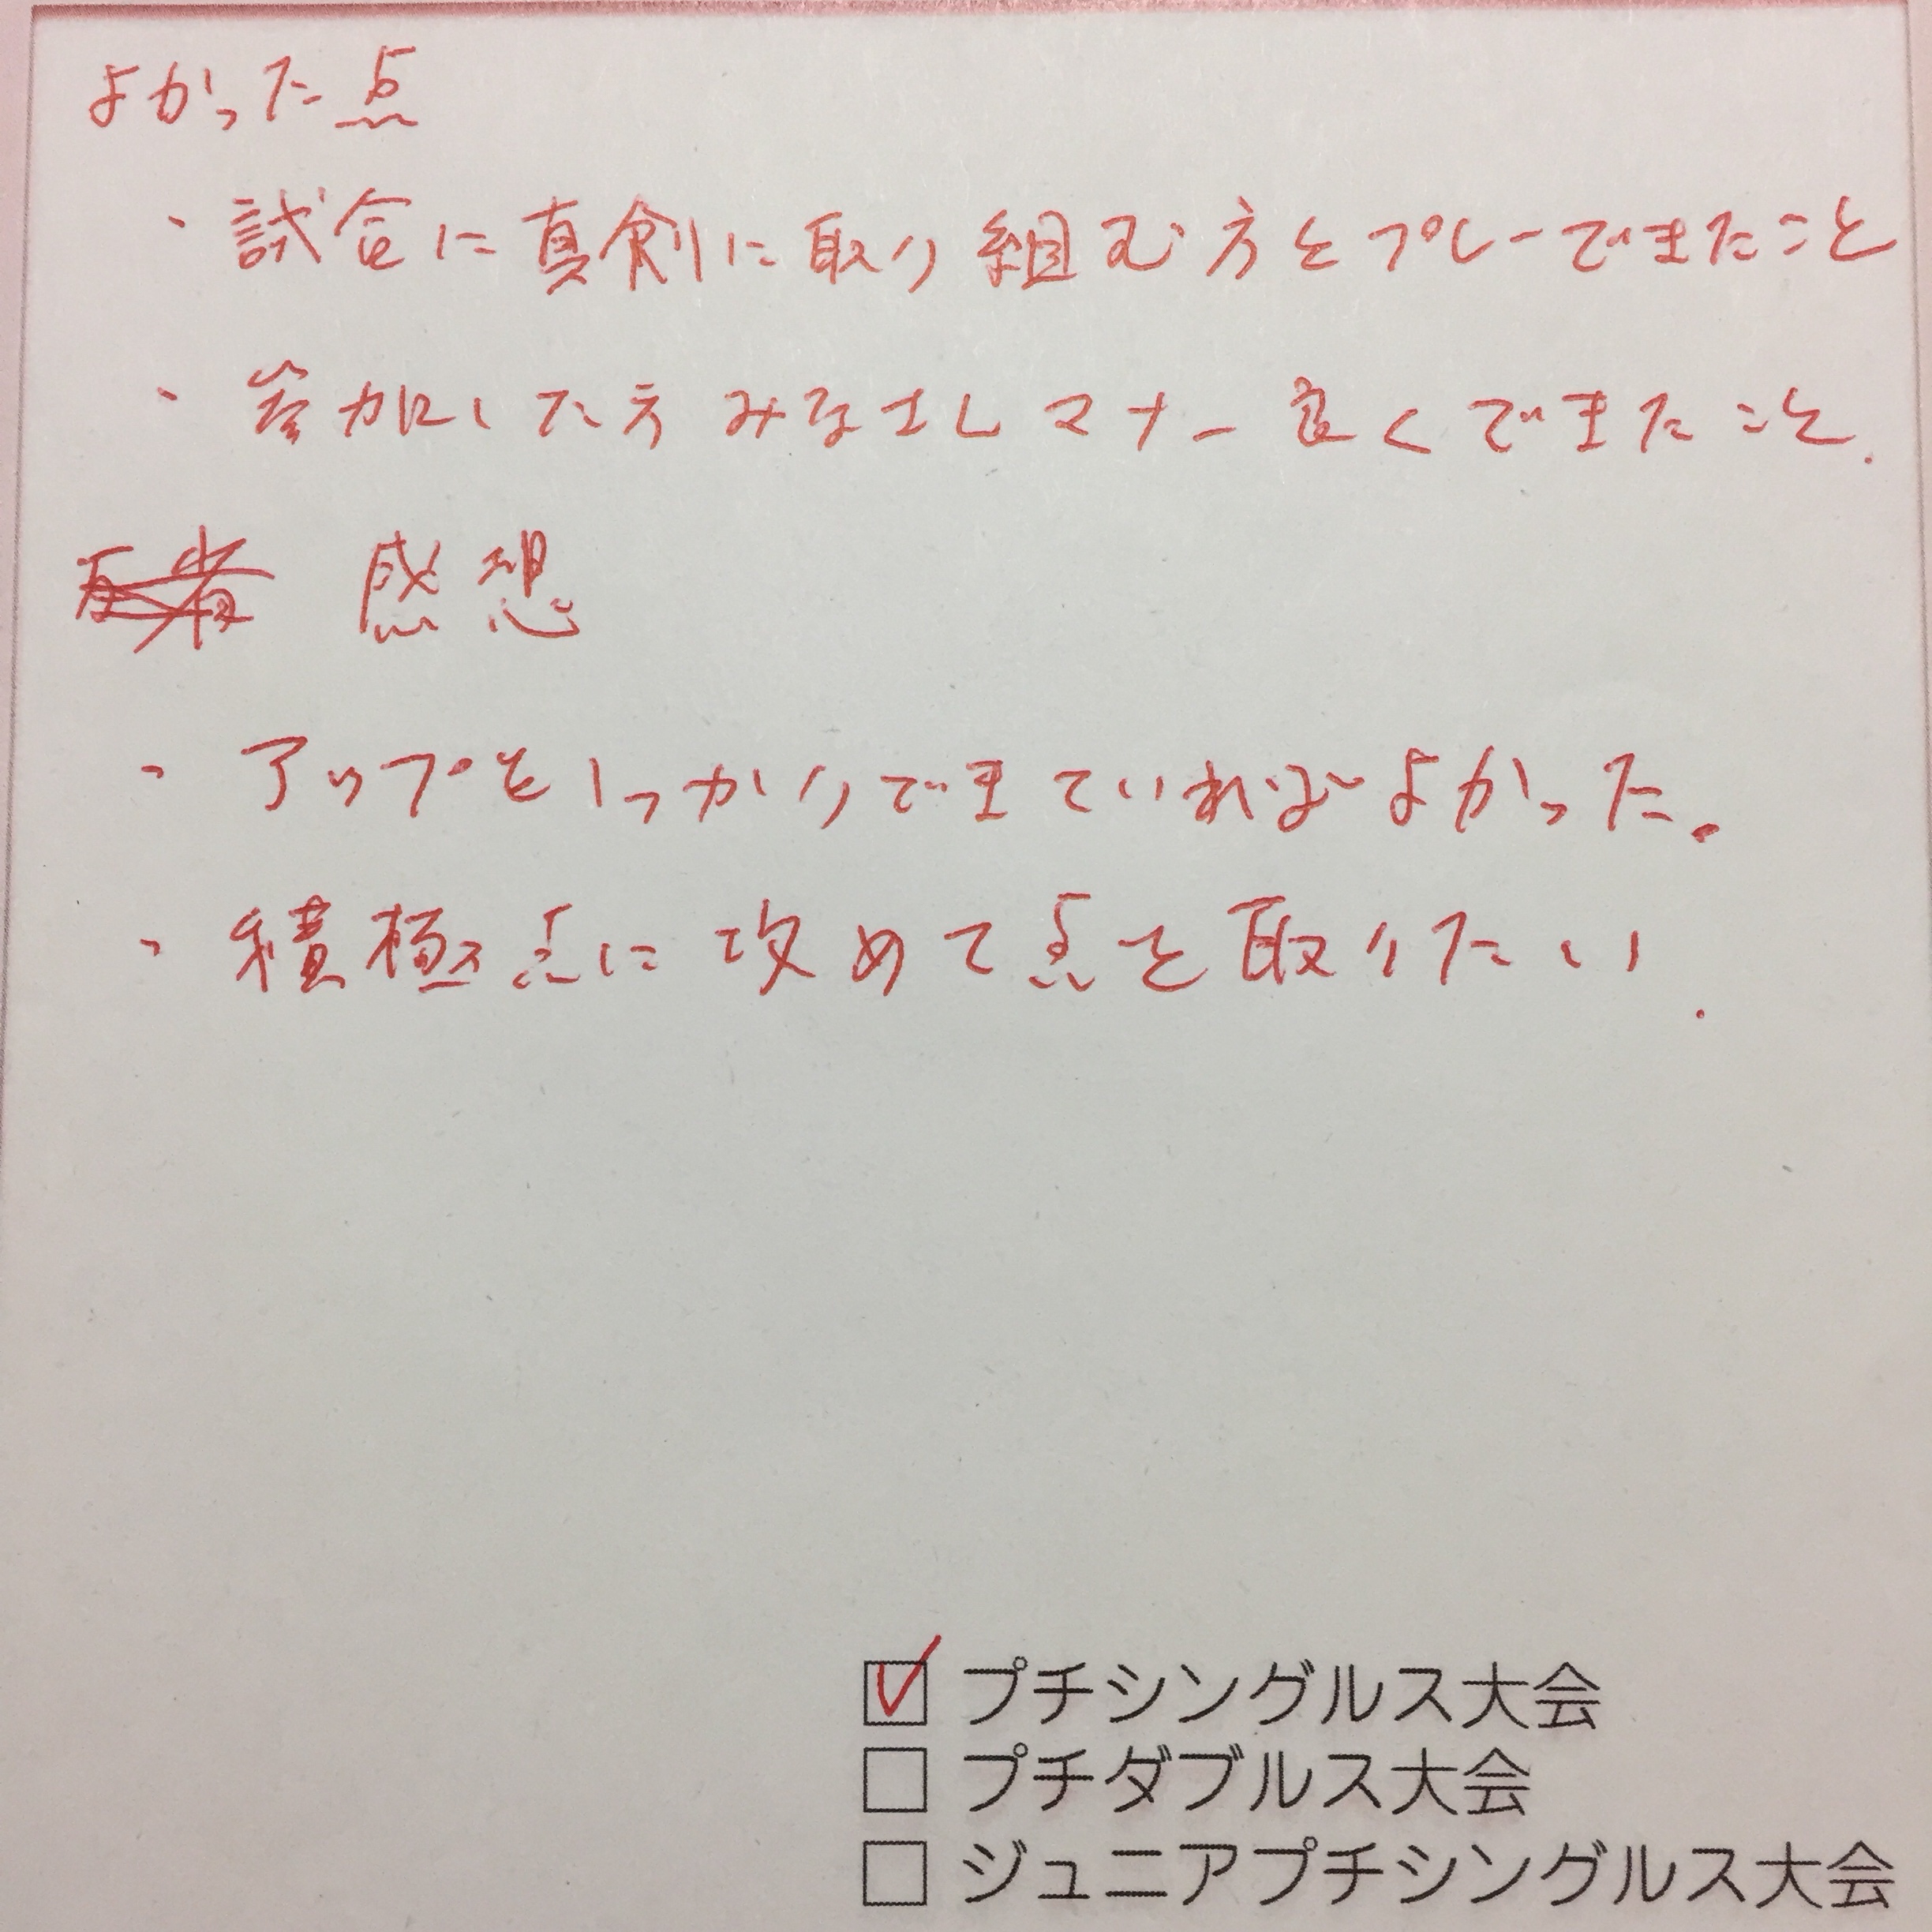 よかった点
・試合に真剣に取り組む方とプレーできたこと
・参加した方みなさんマナー良くできたこと.
反省 感想
・アップをしっかりできていればよかった。
・積極点に攻めて点を取りたい.
☑ プチシングルス大会
□ プチダブルス大会
□ ジュニアプチシングルス大会